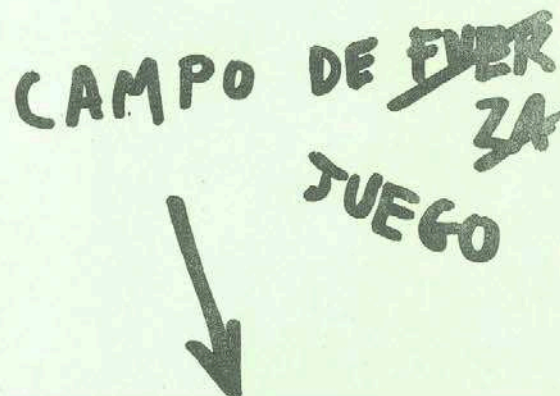 CAMPO DE FUER
ZA
JUEGO